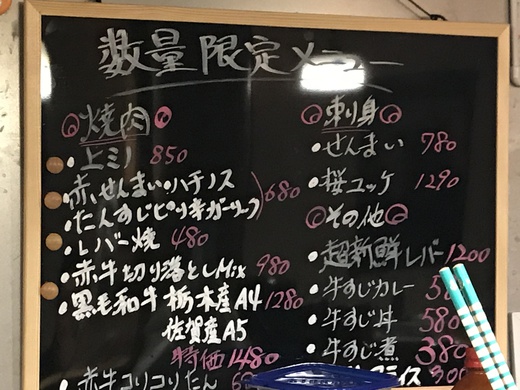 数量限定メニュー
焼肉
・上ミノ 850
・赤せんまい・ハチノス
・たんすじピリ辛ガーリック 680
・レバー焼 480
・赤牛切り落としMix 980
・黒毛和牛 栃木産A4 1280
佐賀産A5
特価 1480
・赤牛コリコリたん
刺身
・せんまい 780
・桜ユッケ 1290
その他
・超新鮮レバー 1200
・牛すじカレー
・牛すじ丼 580
・牛すじ煮 380
ライス 300